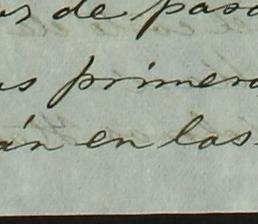 os de pasa
as primera
án en las